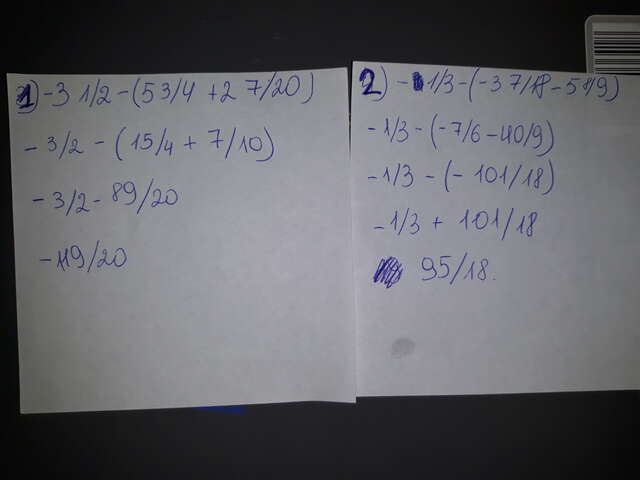 1) -3 1/2 - (5 3/4 + 2 7/20)
-3/2 - (15/4 + 7/10)
-3/2 - 89/20
-119/20
2) - 1/3 - (-3 7/18 - 5 /9)
-1/3 - (-7/6 - 40/9)
-1/3 - (-101/18)
-1/3 + 101/18
95/18.